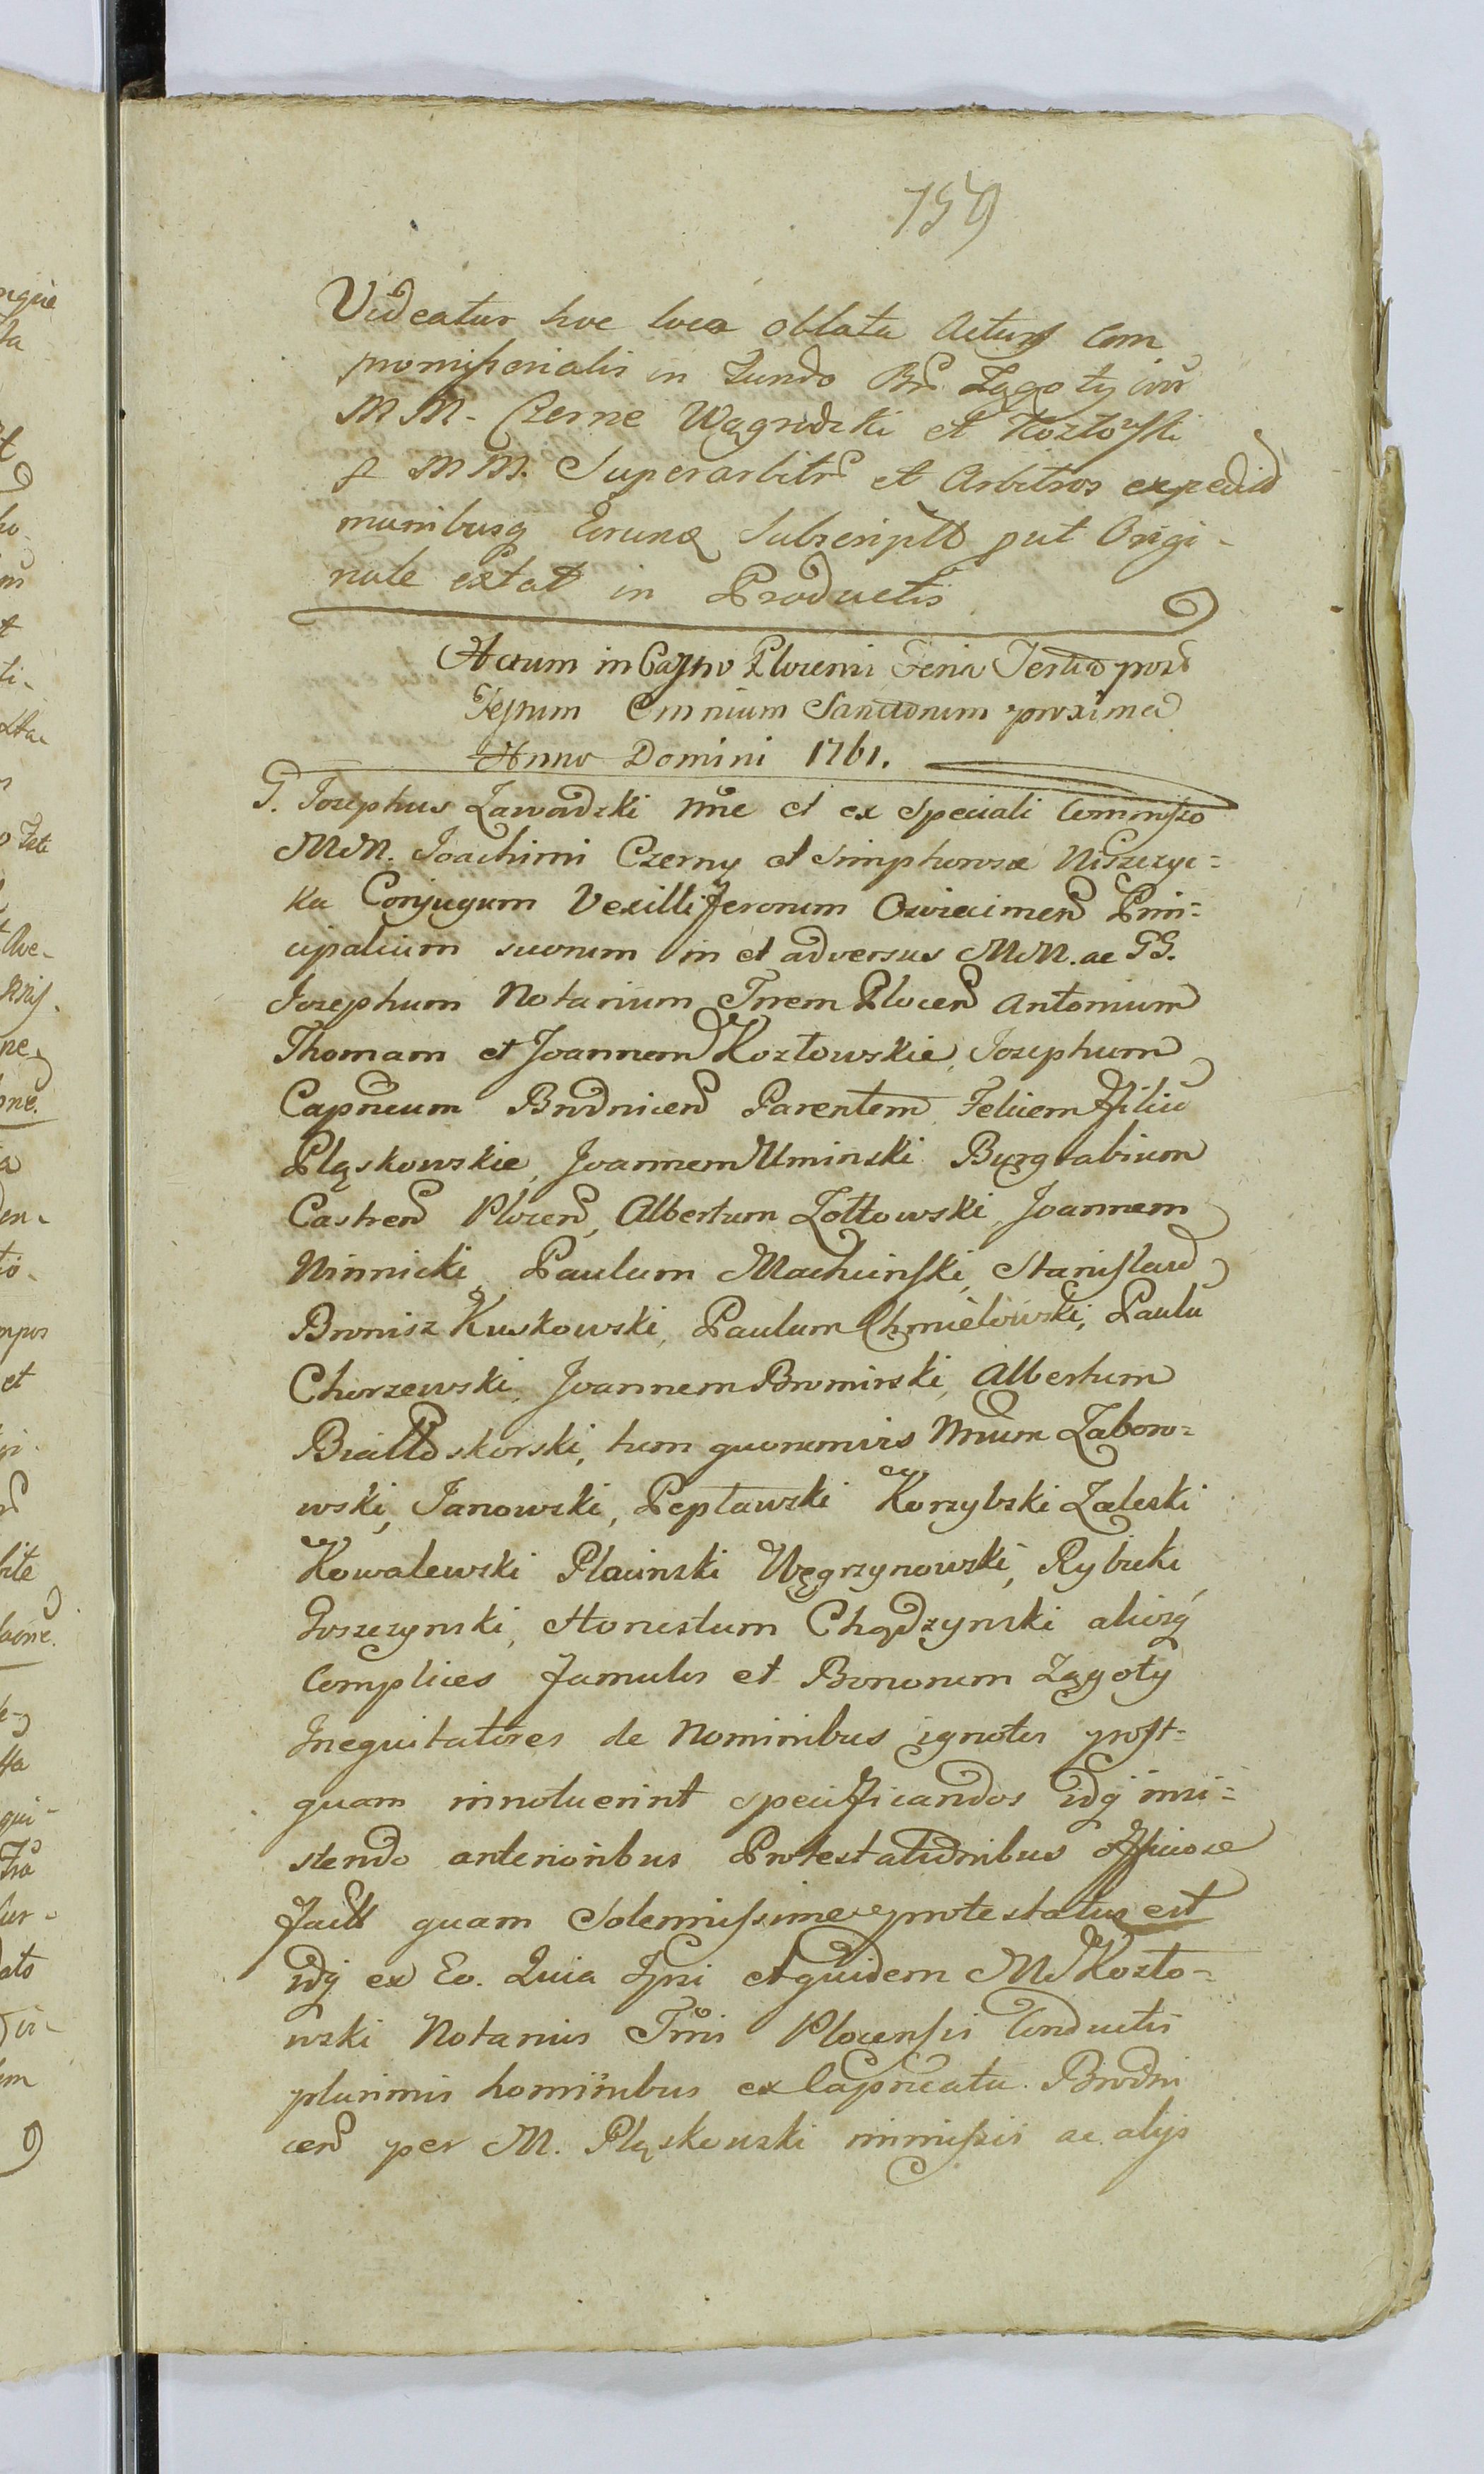 159
Videatur hoc loco oblata Actus Com
promissorialis in Fundo Bnr Zągoty inr
MM. Czerne Wągrodzki et Kozłowski
p MM. Superarbitr et Arbitros expedit
manibusq Eorund Subscriptt put Origi-
nale extat in Productis
Actum in Castro Plocensi Feria Tertia post
Festum Omnium Sanctorum proxima
Anno Domini 1761.
G. Josephus Zawadzki nne et ex speciali Commisso
MM. Joachimi Czerny et Simphorosæ Niszczyc=
ka Conjugum Vexilliferorum Oswiecimen Prin=
cipalium suorum in et adversus MM. ac GG.
Josephum Notarium Trrem Plocen Antonium
Thomam et Joannem Kozłowskie, Josephum
Capneum Brodnicen Parentem, Felicem Filiū
Pląskowskie, Joannem Uminski Burgrabium
Castren Plocen, Albertum Zołtowski, Joannem
Ninnicki, Paulum Machcinski, Stanislaū
Bronisz Kuskowski, Paulum Chmielowski, Paulū
Chorzewski, Joannem Bromirski, Albertum
Białłoskorski, tum quonimvis Nnum Zaboro=
wski, Janowski, Pepławski Korzybski Zaleski
Kowalewski Placinski Węgrzynowski, Rybicki
Goszczynski, Honestum Chądzynski aliosq́
Complices famulos et Bonorum Zągoty
Inequitatores de Nominibus ignotos post=
quam innotuerint specificandos idq́ insi=
stendo anterioribus Protestationibus Officiose
factt quam Solennissime protestatus est
idq́ ex Eo. Quia Ipsi et quidem M. Kozło=
wski Notarius Trris Plocensis Conductis
plurimis hominibus ex Capneatu Brodni
cen per M. Pląskowski immissis ac alijs